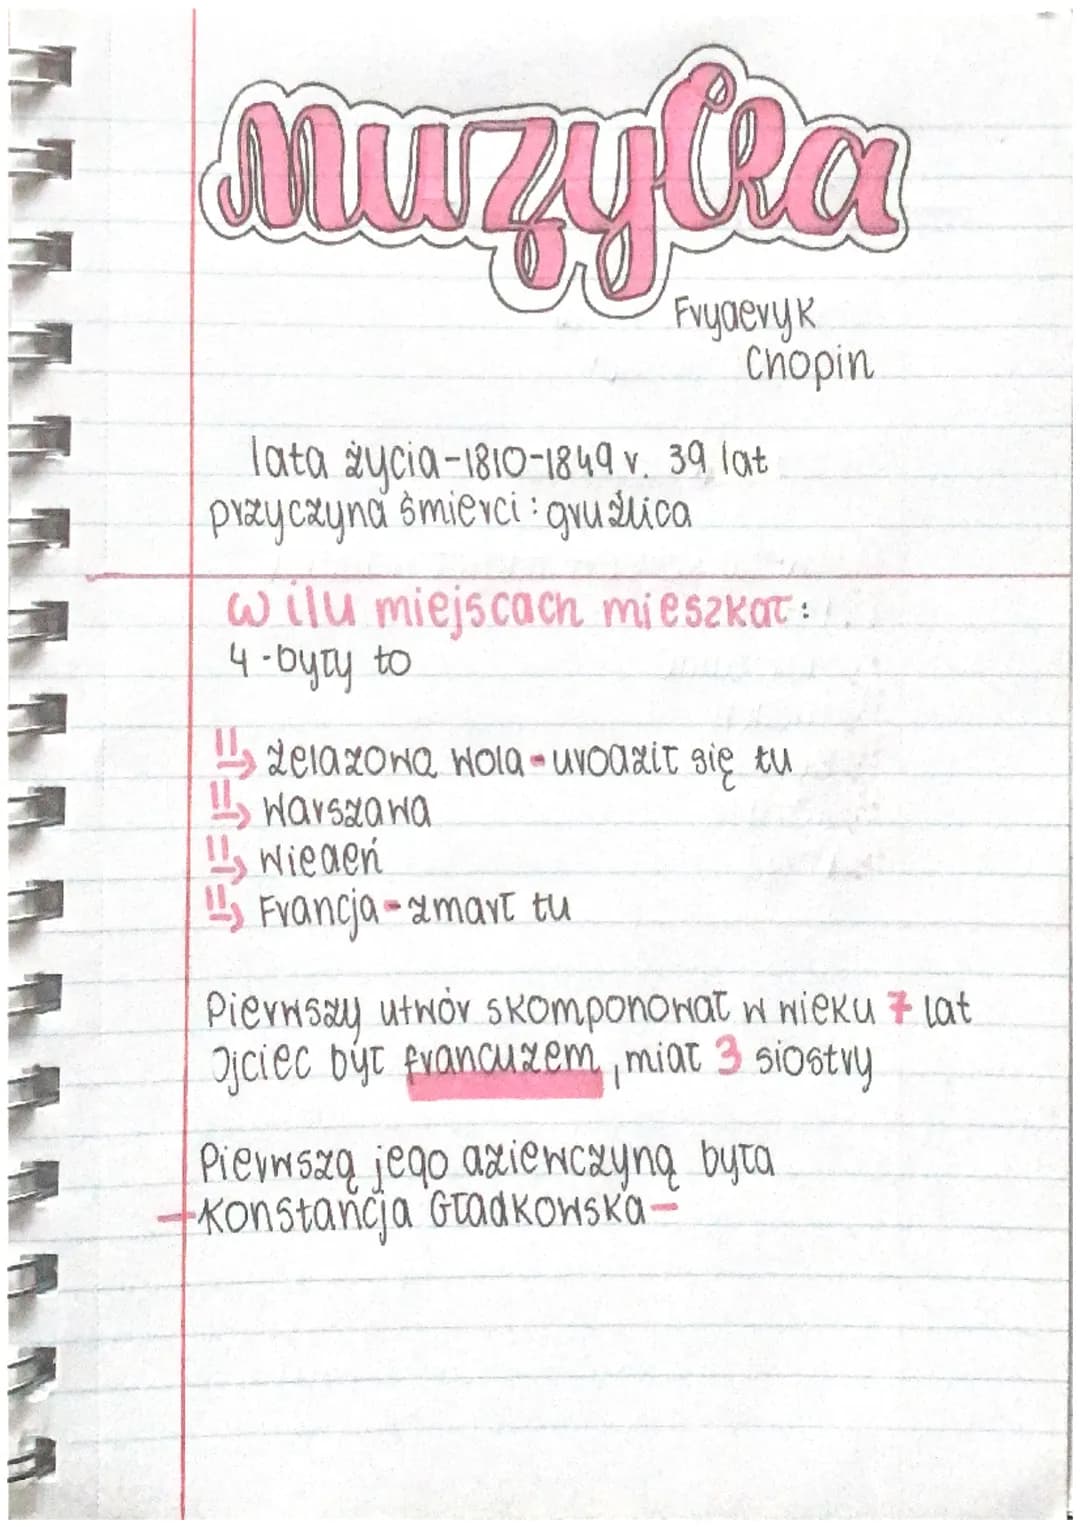 Muzyka
Fryderyk
Chopin
lata życia-1810-1849 r. 39 lat
przyczyna śmierci: gruźlica
w ilu miejscach mieszkał:
4-były to
Żelazowa Wola-urodził się tu
Warszawa
Wiedeń
Francja-zmarł tu
Pierwszy utwór skomponował w wieku 7 lat
Ojciec był francuzem, miał 3 siostry
Pierwszą jego dziewczyną była
-Konstancja Gładkowska-